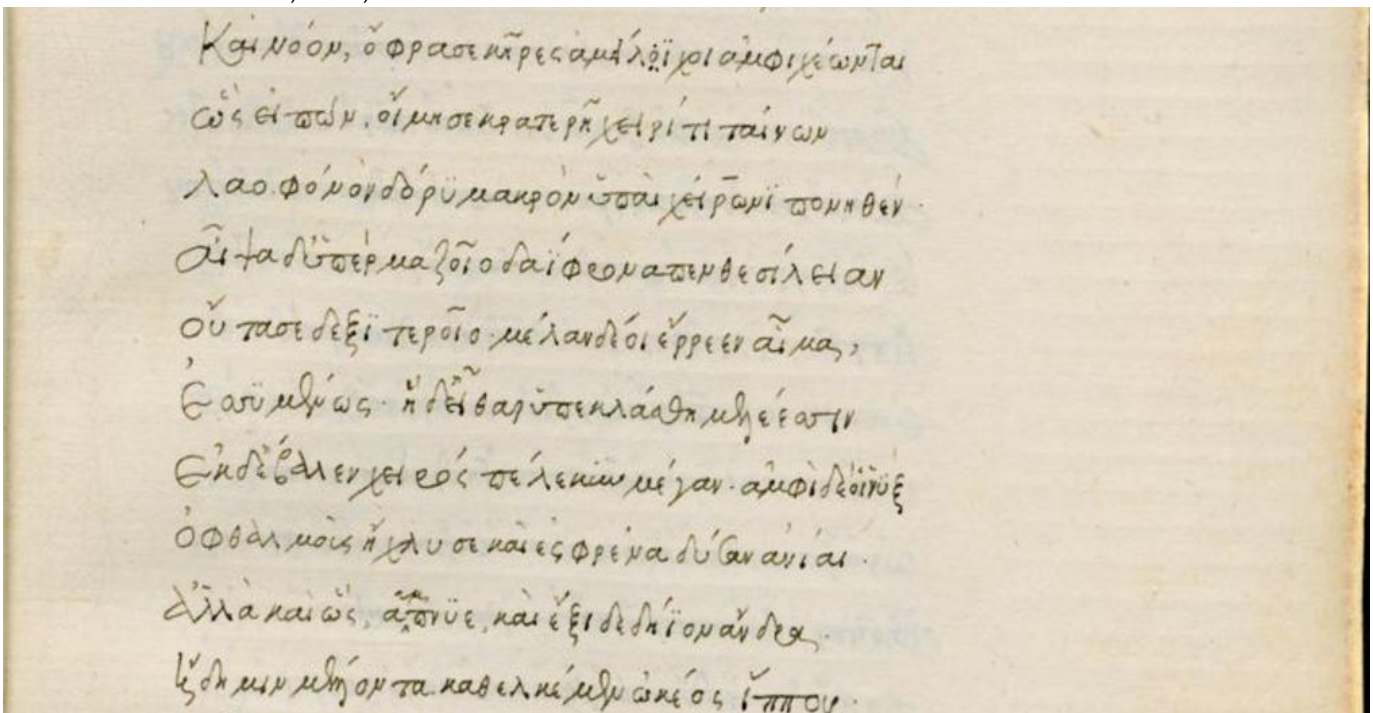 Καὶ νόον, ὅφρασε κῆρες ἀμείλϊχοι ἀμφιχέωνται
ὣς εἰπὼν, οἴμησε κρατερῆ χειρί τιταίνων
λαοφόνον δόρϋ μακρὸν ὑπαὶ χείρωνϊ πονηθέν.
αἶψα δ' ὑπὲρ μαζοῖο δαΐφρονα πενθεσίλειαν
οὔτασε δεξϊτεροῖο. μέλαν δέ οἱ ἔρρεεν αἷμα,
Ἐσσϋμένως. ἡ δ' εἶθαρ ὑπεκλάσθη μελέεσσιν
Ἐκ δ' ἔβαλεν χειρός πέλεκυν μέγαν. ἀμφὶ δέ οἱ νὺξ
ὀφθαλμοὺς ἤχλυσε καὶ ἐς φρένα δῦσαν ἀνίαι.
Ἀλλὰ καὶ ὣς, ἄμπνϋε, καὶ εἴξιδε δήϊον ἄνδρα.
Ἤδη μιν μέλλοντα καθελκέμεν ὠκέος ἵππου.